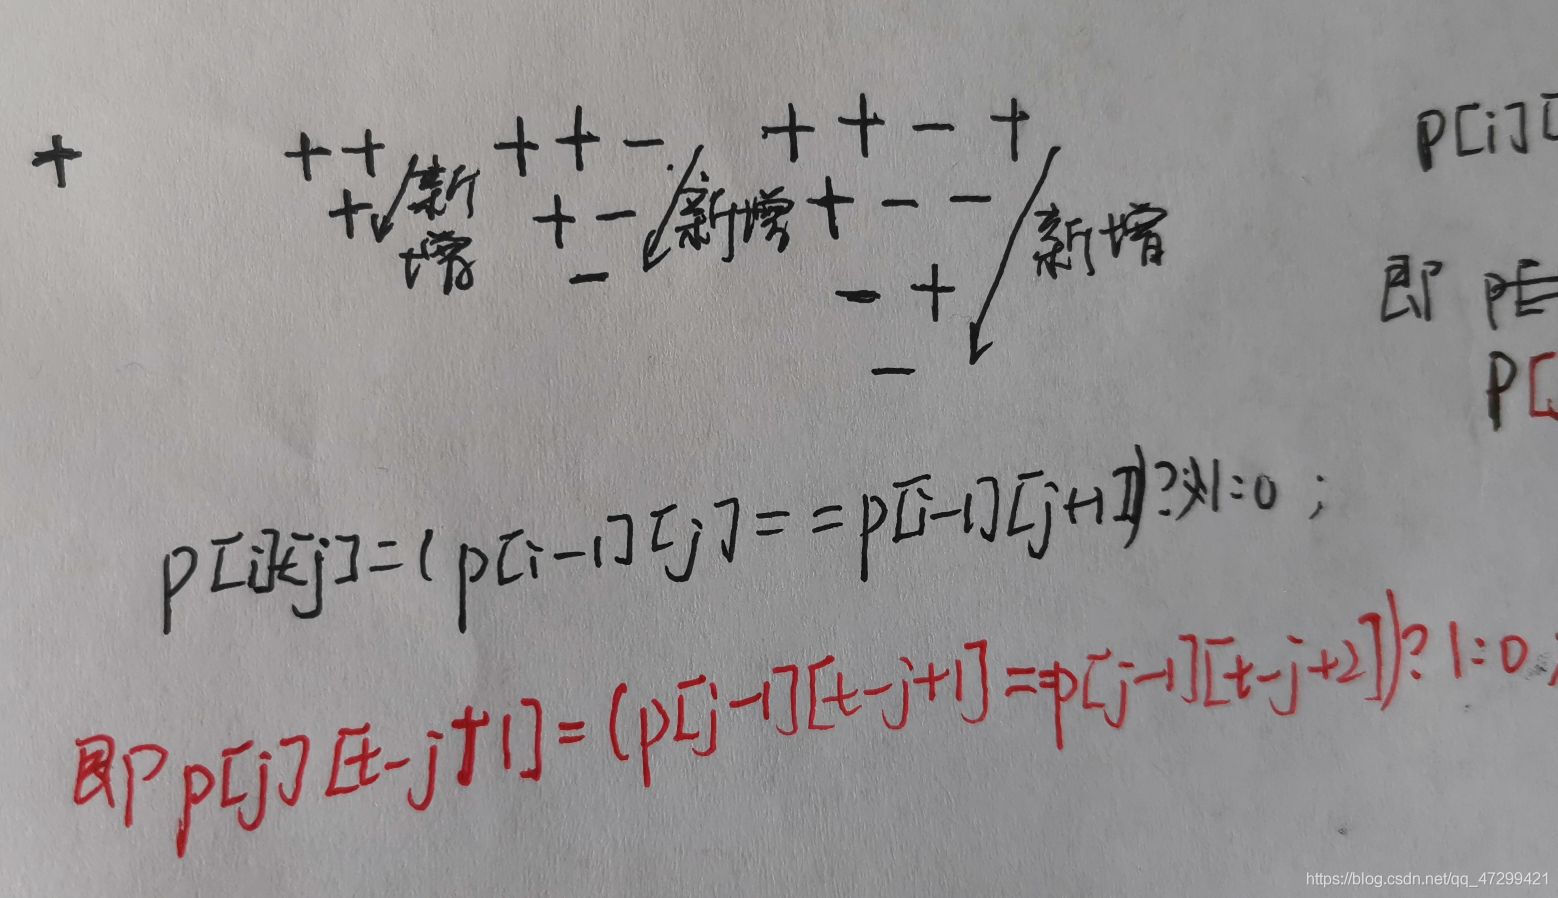 + ++ ++- ++-+ p[i][
+ 新增 +- 新增 +-- 新增
- -+ 即 p[
- p[
p[i][j]=(p[i-1][j]==p[i-1][j+1])?1:0;
即p[j][t-j+1]=(p[j-1][t-j+1]==p[j-1][t-j+2])?1:0;
https://blog.csdn.net/qq_47299421